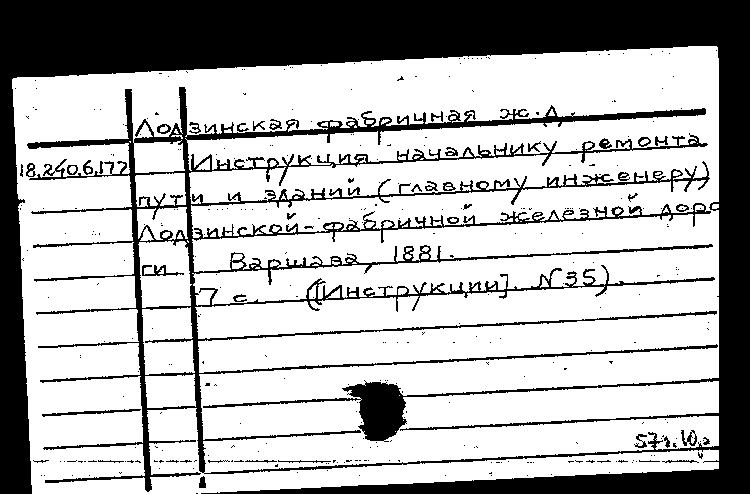 Лодзинская фабричная ж.д.
18.240.6.177 Инструкция начальнику ремонта
пути и зданий (главному инженеру)
Лодзинской-фабричной железной доро
ги Варшава, 1881.
7 с. ([Инструкции]. N 35).